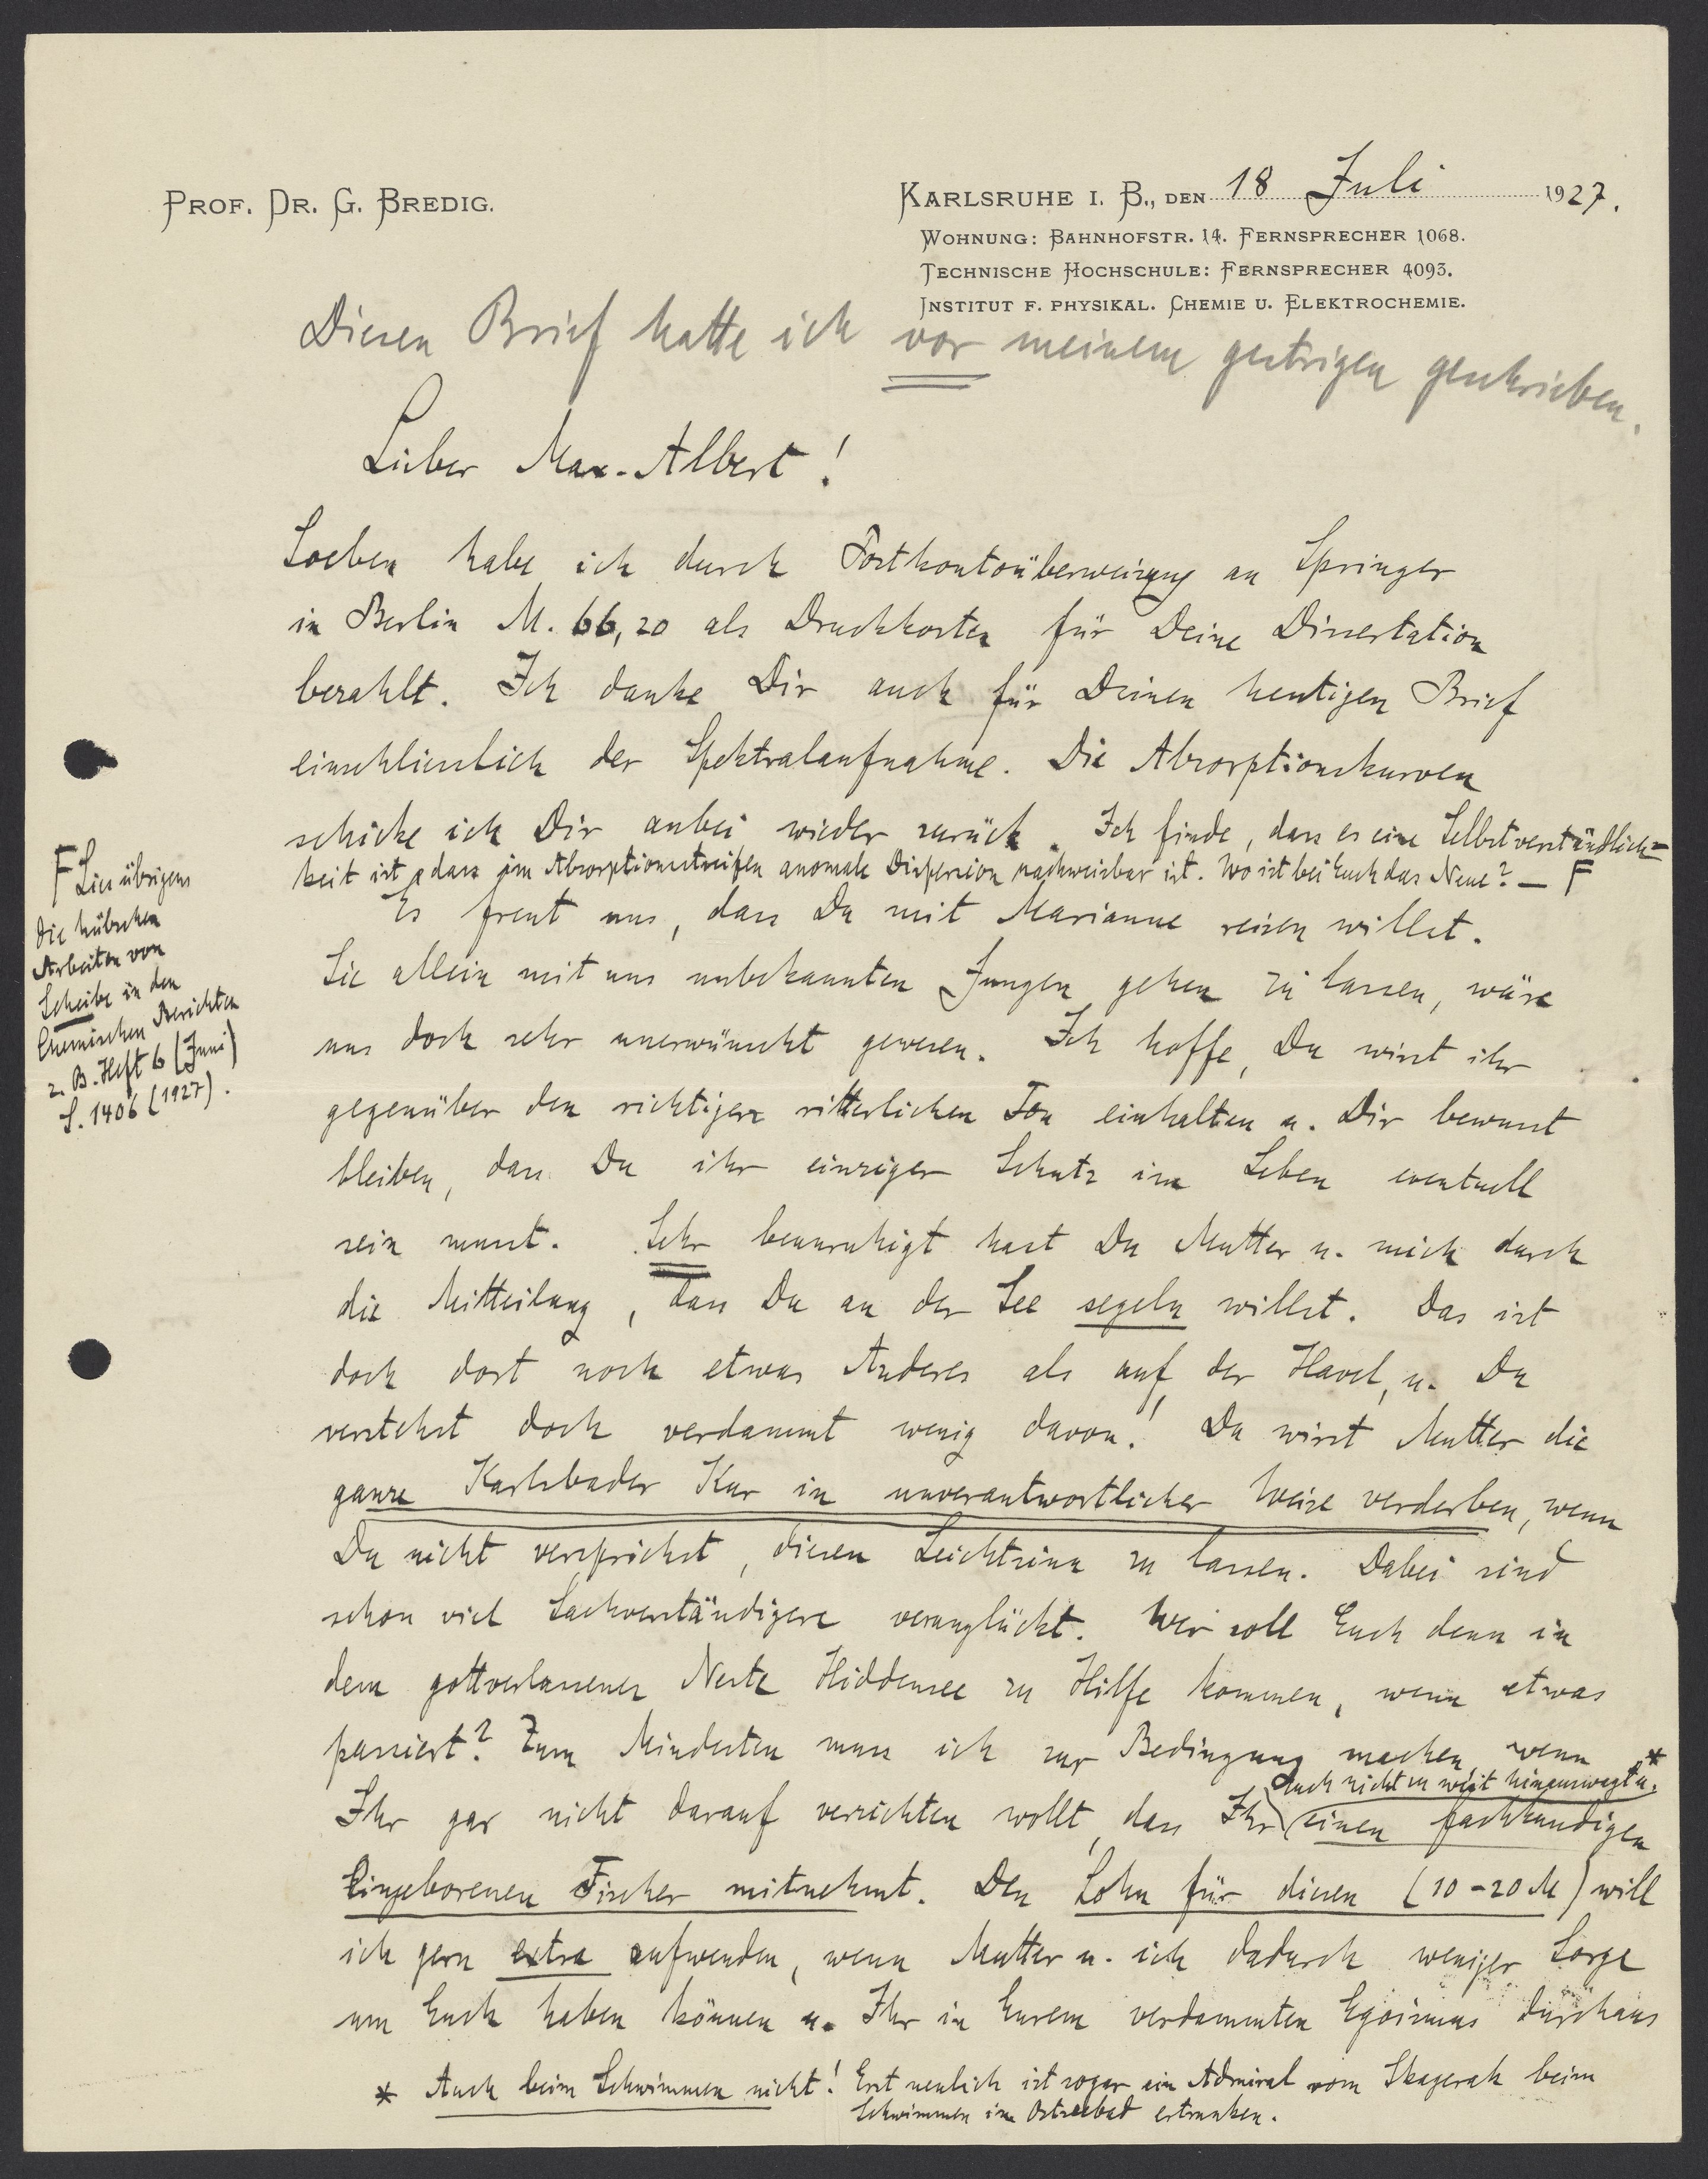 PROF. DR. G. BREDIG.
KARLSRUHE I. B., DEN 18 Juli 1927.
WOHNUNG: BAHNHOFSTR. 14. FERNSPRECHER 1068.
TECHNISCHE HOCHSCHULE: FERNSPRECHER 4093.
INSTITUT F. PHYSIKAL. CHEMIE U. ELEKTROCHEMIE.
Diesen Brief hatte ich vor meinem gestrigen geschrieben.
Lieber Max-Albert!
Soeben habe ich durch Postkontoüberweisung an Springer
in Berlin M. 66,20 als Druckkosten für Deine Dissertation
bezahlt. Ich danke Dir auch für Deinen heutigen Brief
einschliesslich der Spektralaufnahme. Die Absorptionskurven
schicke ich Dir anbei wieder zurück. Ich finde, dass es eine Selbstverständlich=
keit ist, dass im Absorptionsstreifen anomale Dispersion nachweisbar ist. Wo ist bei Euch das Neue? — F
F Lies übrigens
die hübschen
Arbeiten von
Scheibe in den
Chemischen Berichten
z. B. Heft 6 (Juni)
S. 1406 (1927).
Es freut uns, dass Du mit Marianne reisen willst.
Sie allein mit uns unbekannten Jungen gehen zu lassen, wäre
uns doch sehr unerwünscht gewesen. Ich hoffe, Du wirst ihr
gegenüber den richtigen ritterlichen Ton einhalten u. Dir bewusst
bleiben, dass Du ihr einziger Schutz im Leben eventuell
sein musst. Sehr beunruhigt hast Du Mutter u. mich durch
die Mitteilung, dass Du an der See segeln willst. Das ist
doch dort noch etwas Anderes als auf der Havel, u. Du
verstehst doch verdammt wenig davon! Du wirst Mutter die
ganze Karlsbader Kur in unverantwortlicher Weise verderben, wenn
Du nicht versprichst, diesen Leichtsinn zu lassen. Dabei sind
schon viel Sachverständigere verunglückt. Wer soll Euch denn in
dem gottverlassenen Neste Hiddensee zu Hilfe kommen, wenn etwas
passiert? Zum Mindesten muss ich zur Bedingung machen, wenn
Ihr gar nicht darauf verzichten wollt, dass Ihr (Euch nicht zu weit hinauswagt* u. einen fachkundigen
Eingeborenen Fischer mitnehmt. Den Lohn für diesen (10-20 M) will
ich gern extra aufwenden, wenn Mutter u. ich dadurch weniger Sorge
um Euch haben können u. Ihr in Eurem verdammten Egoismus durchaus
* Auch beim Schwimmen nicht! Erst neulich ist sogar ein Admiral vom Skagerak beim
Schwimmen im Ostseebad ertrunken.